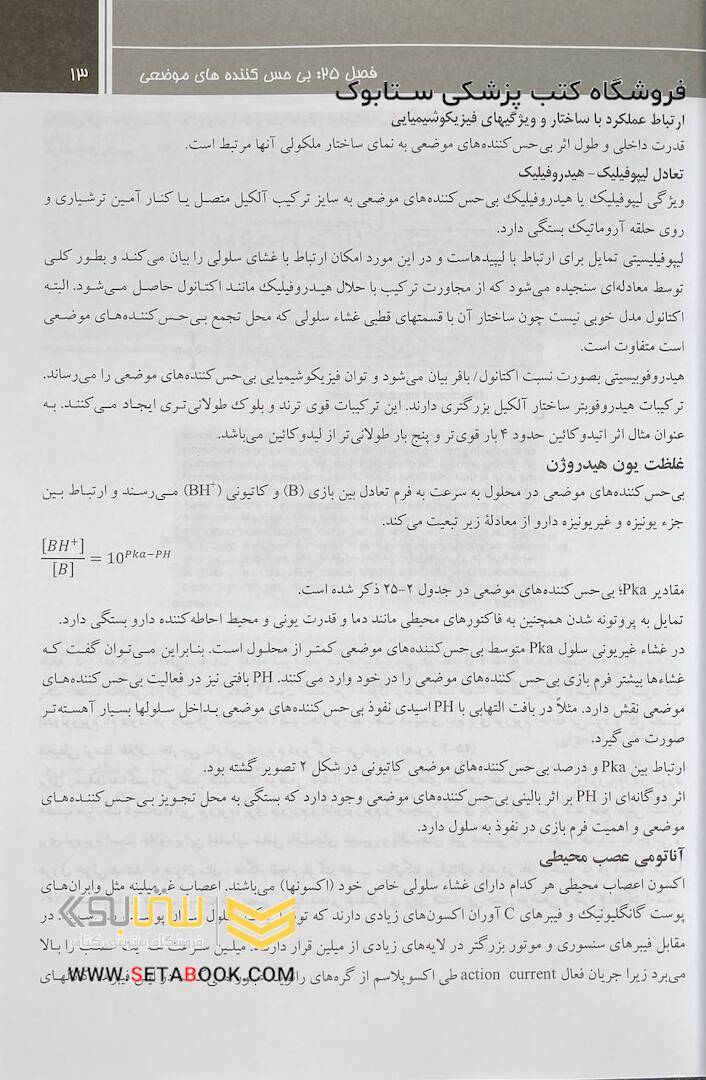 ۱۳
فصل ۲۵: بی حس کننده های موضعی
فروشگاه کتب پزشکی ستابوک
ارتباط عملکرد با ساختار و ویژگیهای فیزیکوشیمیایی
قدرت داخلی و طول اثر بی‌حس‌کننده‌های موضعی به نمای ساختار ملکولی آنها مرتبط است.
تعادل لیپوفیلیک- هیدروفیلیک
ویژگی لیپوفیلیک یا هیدروفیلیک بی‌حس‌کننده‌های موضعی به سایز ترکیب آلکیل متصل یا کنار آمین ترشیاری و
روی حلقه آروماتیک بستگی دارد.
لیپوفیلیسیتی تمایل برای ارتباط با لیپیدهاست و در این مورد امکان ارتباط با غشای سلولی را بیان می‌کند و بطور کلی
توسط معادله‌ای سنجیده می‌شود که از مجاورت ترکیب با حلال هیدروفیلیک مانند اکتانول حاصل می‌شود. البته
اکتانول مدل خوبی نیست چون ساختار آن با قسمتهای قطبی غشاء سلولی که محل تجمع بی‌حس‌کننده‌های موضعی
است متفاوت است.
هیدروفوبیسیتی بصورت نسبت اکتانول/ بافر بیان می‌شود و توان فیزیکوشیمیایی بی‌حس‌کننده‌های موضعی را می‌رساند.
ترکیبات هیدروفوبتر ساختار آلکیل بزرگتری دارند. این ترکیبات قوی ترند و بلوک طولانی‌تری ایجاد می‌کنند. به
عنوان مثال اثر اتیدوکائین حدود ۴ بار قوی‌تر و پنج بار طولانی‌تر از لیدوکائین می‌باشد.
غلظت یون هیدروژن
بی‌حس‌کننده‌های موضعی در محلول به سرعت به فرم تعادل بین بازی (B) و کاتیونی (BH⁺) می‌رسند و ارتباط بین
جزء یونیزه و غیریونیزه دارو از معادلهٔ زیر تبعیت می‌کند.
[BH+]/[B] = 10^{Pka−PH}
مقادیر Pka؛ بی‌حس‌کننده‌های موضعی در جدول ۲-۲۵ ذکر شده است.
تمایل به پروتونه شدن همچنین به فاکتورهای محیطی مانند دما و قدرت یونی و محیط احاطه‌کننده دارو بستگی دارد.
در غشاء غیریونی سلول Pka متوسط بی‌حس‌کننده‌های موضعی کمتر از محلول است. بنابراین می‌توان گفت که
غشاءها بیشتر فرم بازی بی‌حس کننده‌های موضعی را در خود وارد می‌کنند. PH بافتی نیز در فعالیت بی‌حس‌کننده‌های
موضعی نقش دارد. مثلاً در بافت التهابی با PH اسیدی نفوذ بی‌حس‌کننده‌های موضعی بداخل سلولها بسیار آهسته‌تر
صورت می‌گیرد.
ارتباط بین Pka و درصد بی‌حس‌کننده‌های موضعی کاتیونی در شکل ۲ تصویر گشته بود.
اثر دوگانه‌ای از PH بر اثر بالینی بی‌حس‌کننده‌های موضعی وجود دارد که بستگی به محل تجویز بی‌حس‌کننده‌های
موضعی و اهمیت فرم بازی در نفوذ به سلول دارد.
آناتومی عصب محیطی
اکسون اعصاب محیطی هر کدام دارای غشاء سلولی خاص خود (اکسونها) می‌باشند. اعصاب غیرمیلینه مثل وابران‌های
پوست گانگلیونیک و فیبرهای C آوران اکسون‌های زیادی دارند که در
مقابل فیبرهای سنسوری و موتور بزرگتر در لایه‌های زیادی از میلین قرار دارند. میلین سرعت را بالا
می‌برد زیرا جریان فعال action current طی اکسوپلاسم از گره‌های
ستابوک
WWW.SETABOOK.COM